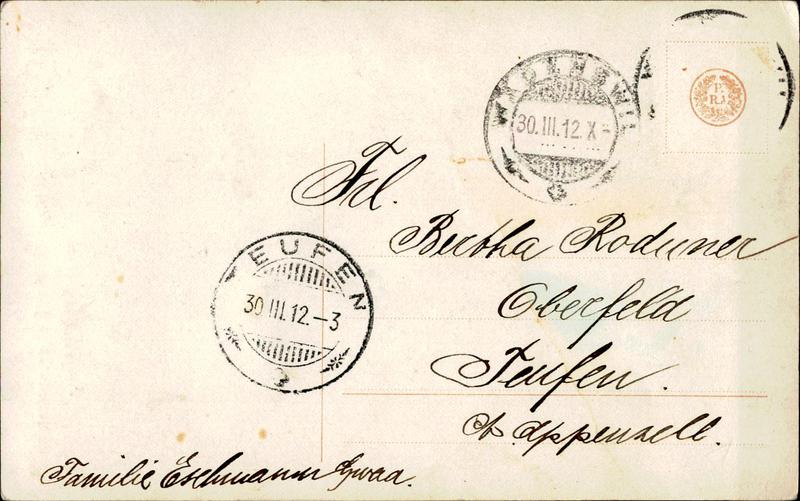 WÄDENSWIL
30.III.12.X-
P.
R.J.
Frl.
Bertha Roduner
Oberfeld
Teufen.
Ct. Appenzell.
TEUFEN
30.III.12.-3
Familie Eschmann Gwaa.